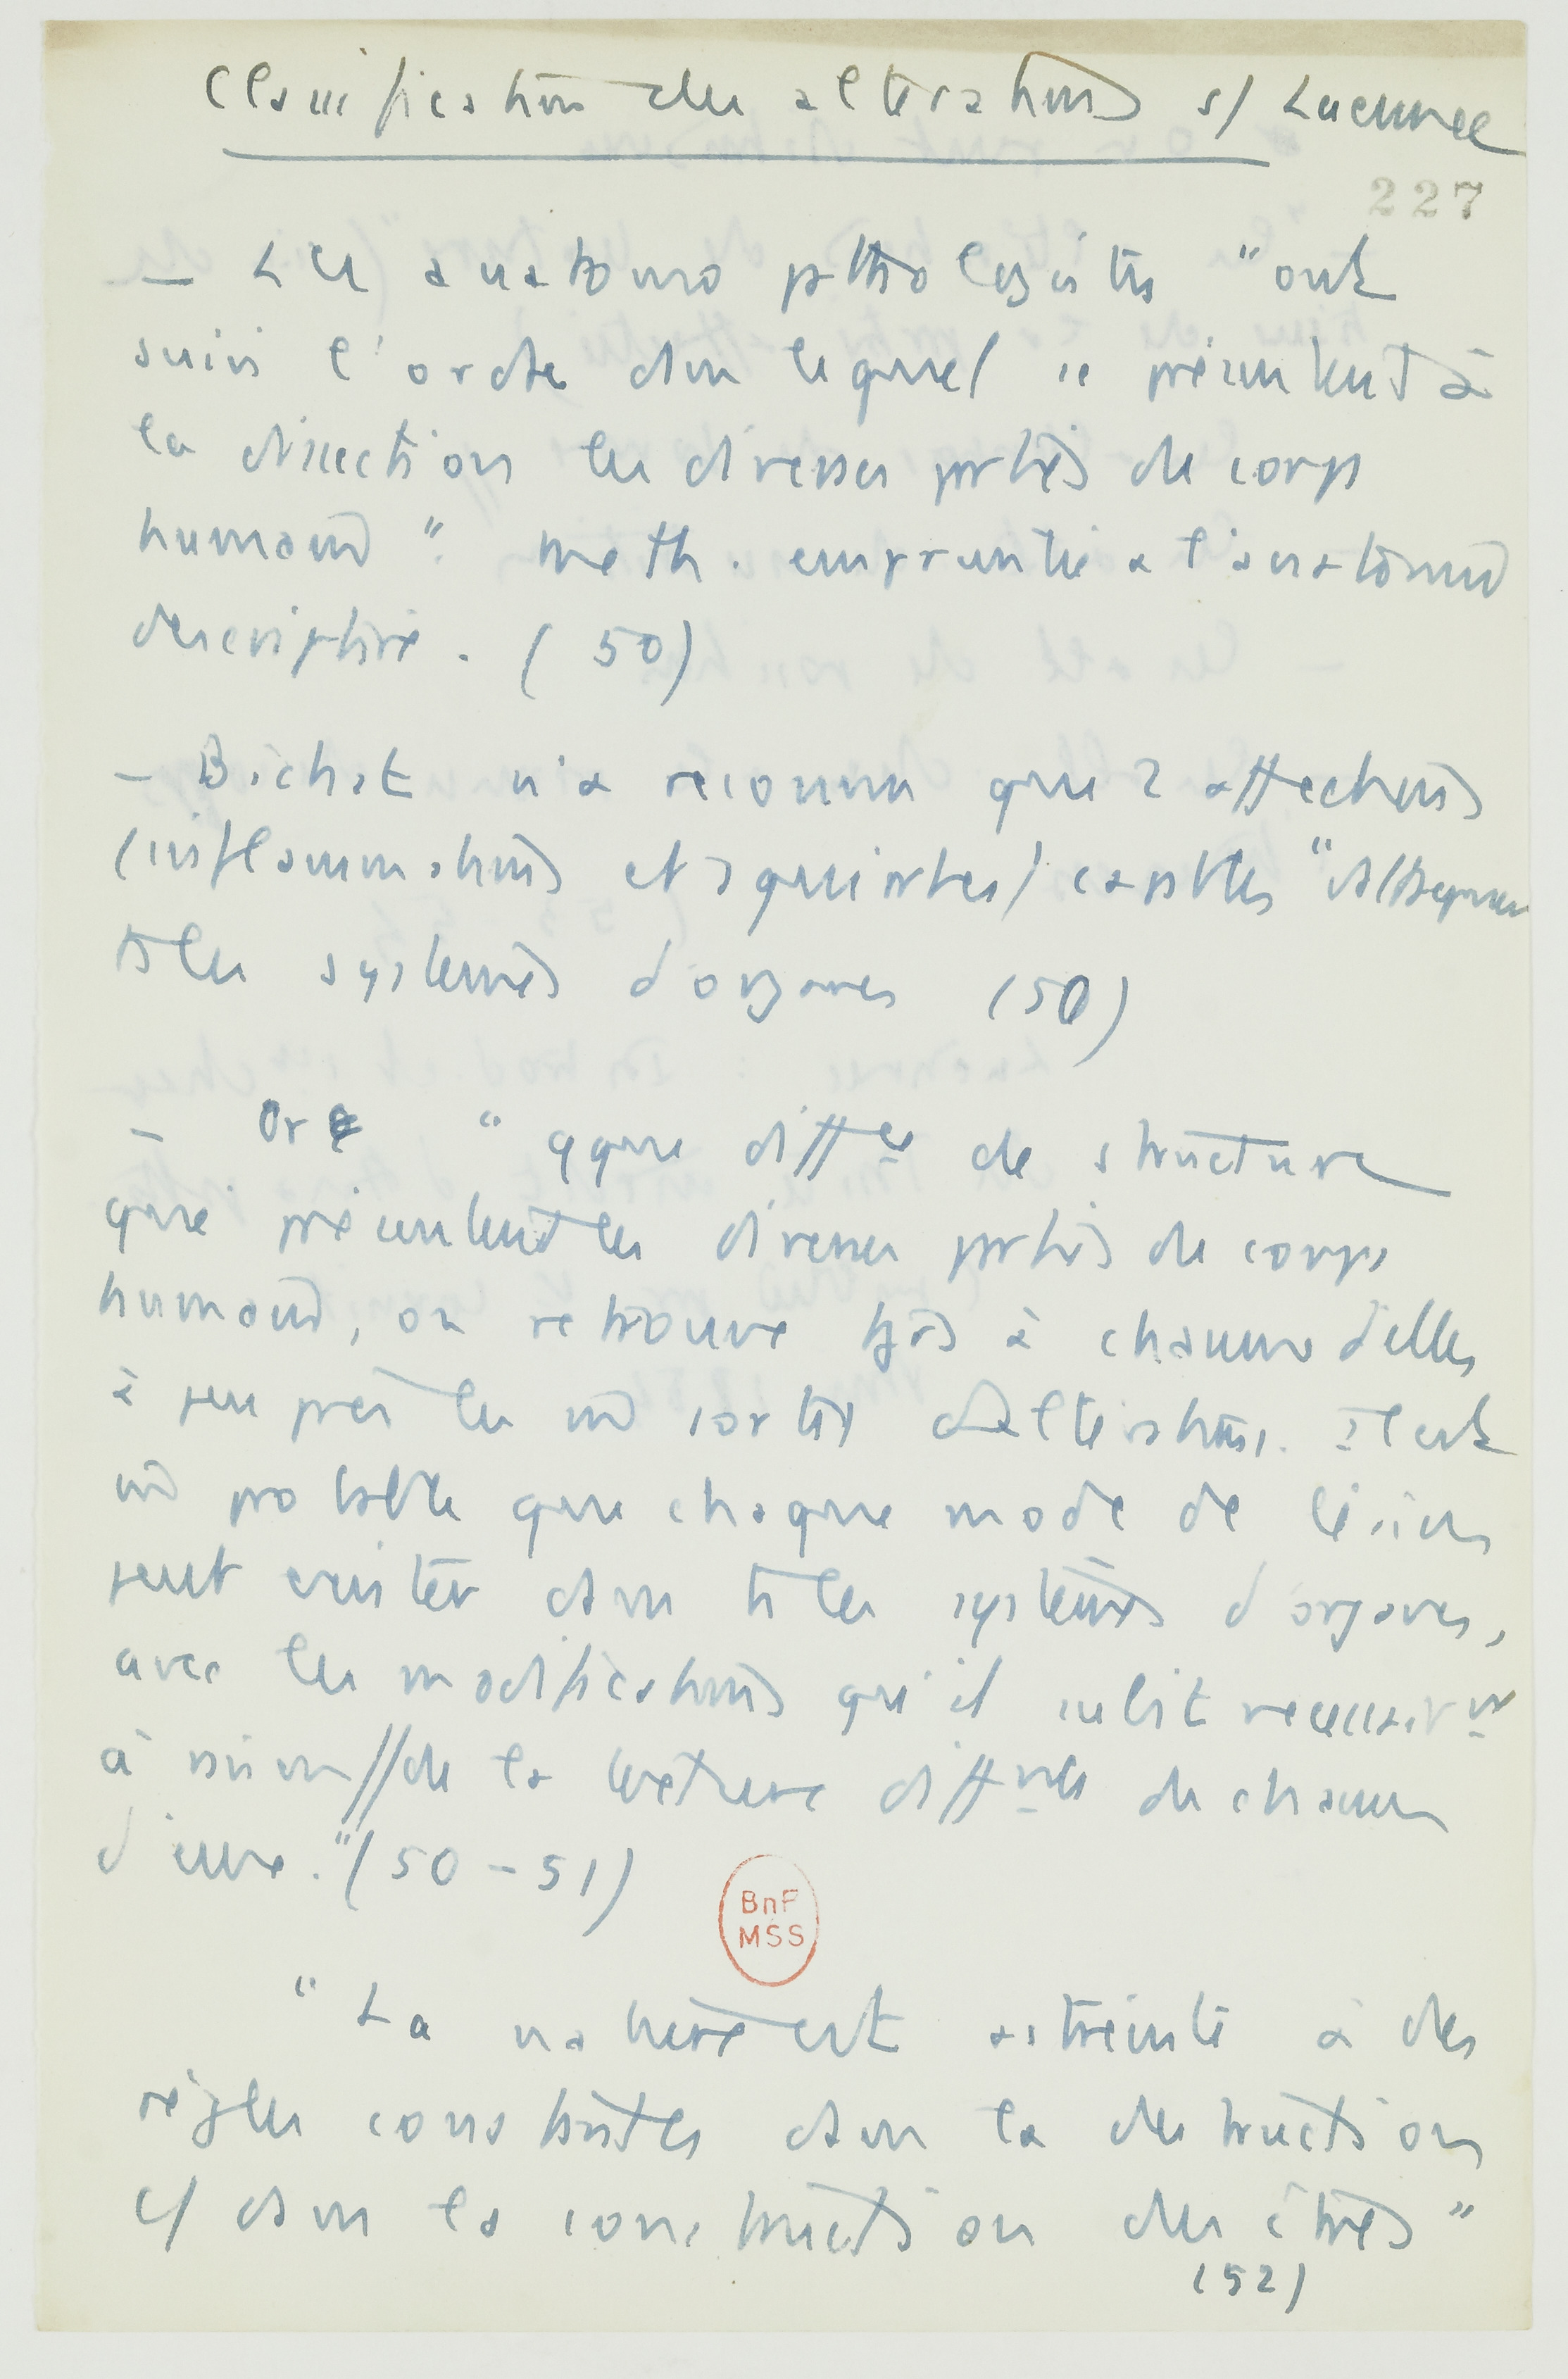 Classification des altérations s/ Laennec
227
— Les anatomo pathologistes "ont
suivi l'ordre dans lequel se présentent à
la dissection les diverses parties du corps
humain". Meth. empruntée à l'anatomie
descriptive. (50)
— Bichat n'a reconnu que 2 affections
(inflammations et squirrhes) capbles "d'attaquer
ts les systèmes d'organes (50)
— Or "qque diffce de structure
que présentent les diverses parties du corps
humain, on retrouve tjrs à chacune d'elles
à peu près les m̄ sortes d'altérations. Il est
m̄ probable que chaque mode de lésion
peut exister dans ts les systèmes d'organes,
avec les modifications qu'il subit
à de la texture diffnte de chacun
d'eux." (50-51)
BnF
MSS
"La nature est astreinte à des
règles constantes dans la destruction
c/ dans la construction des êtres"
(52)